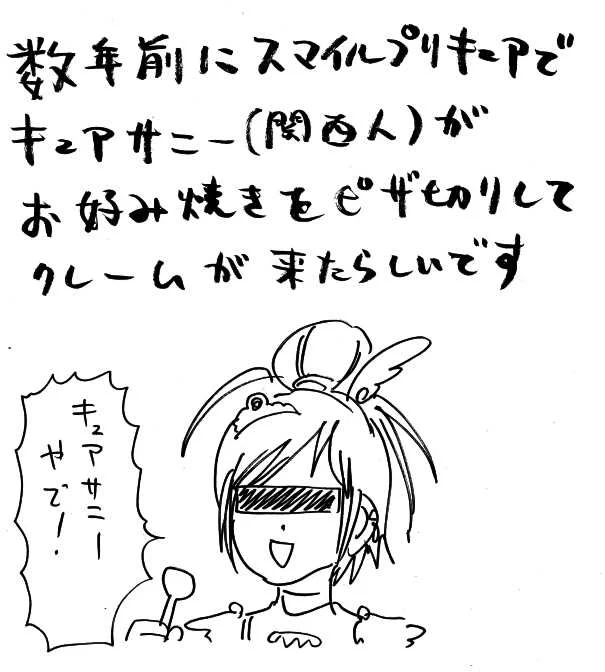 数年前にスマイルプリキュアで
キュアサニー(関西人)が
お好み焼きをピザ切りして
クレームが来たらしいです
キュアサニー
やで!